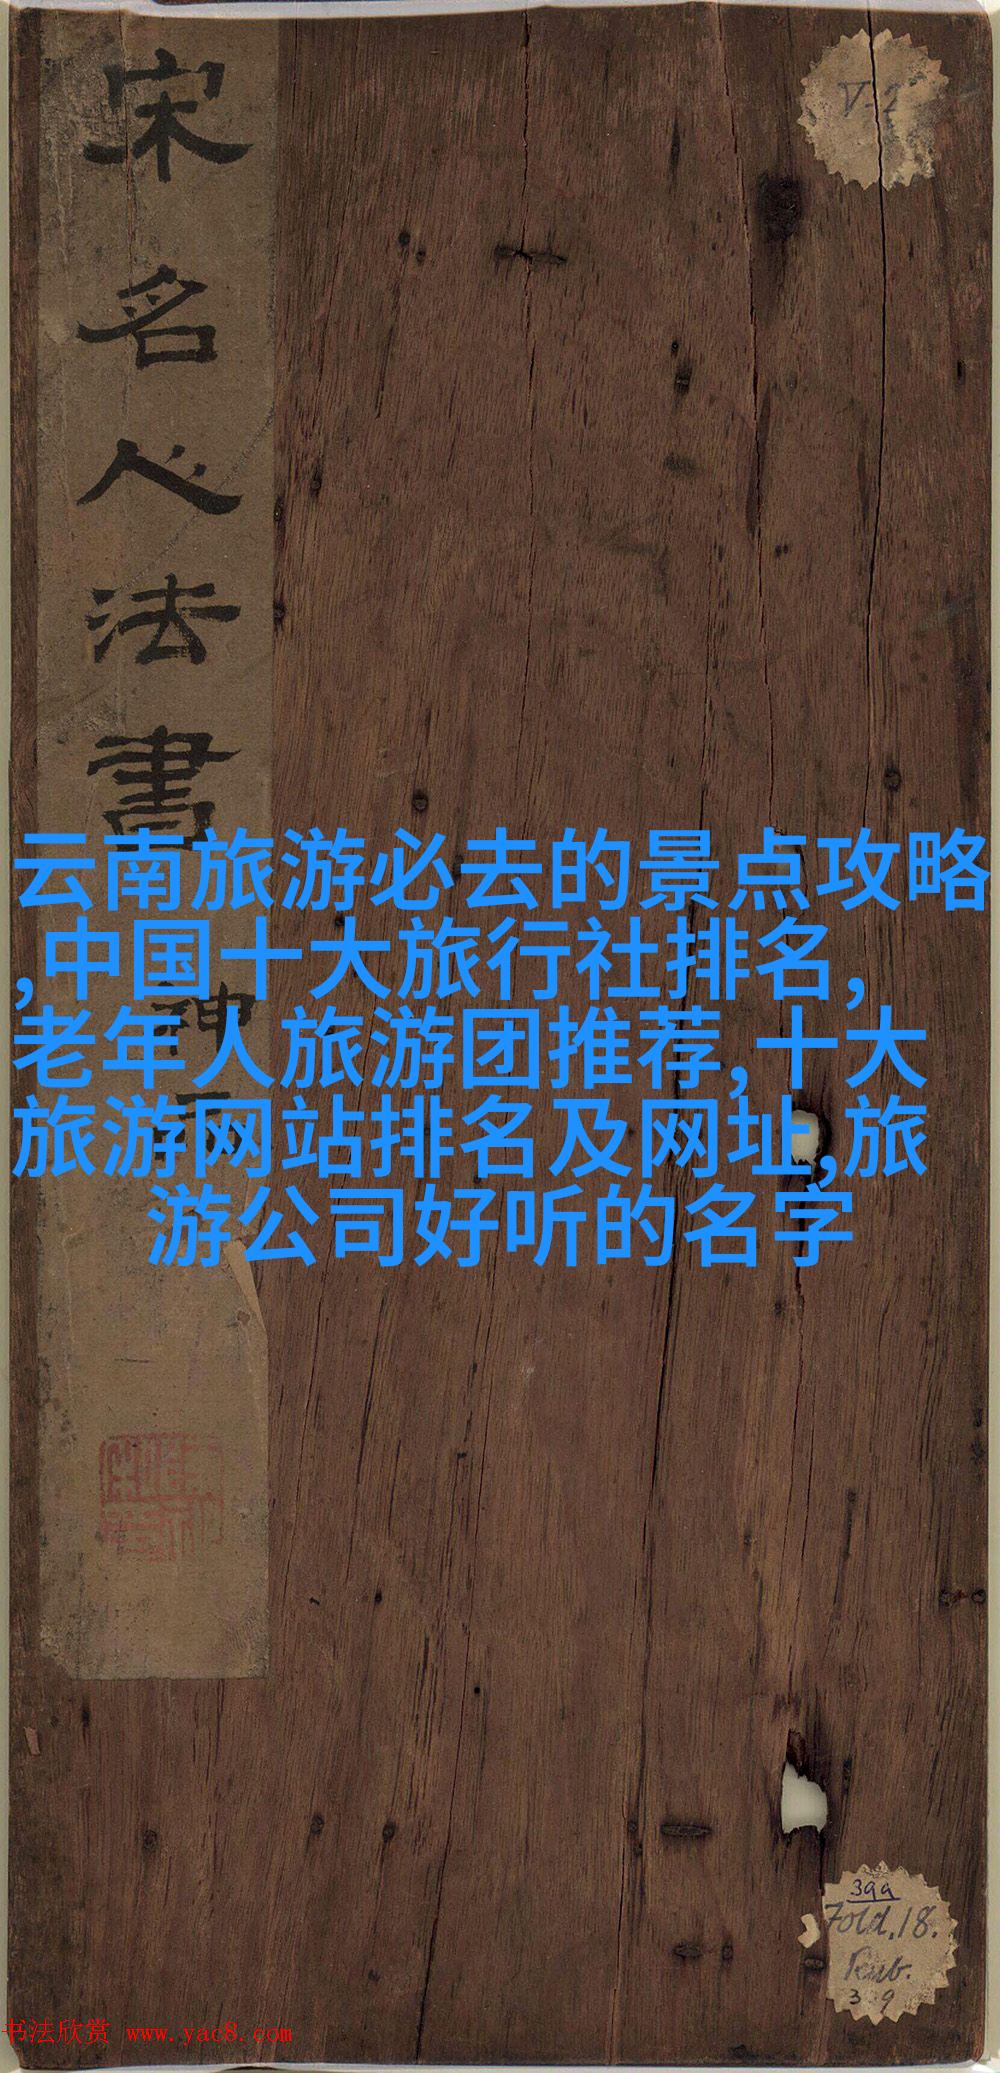 宋名人法書
神品
V-2
云南旅游必去的景点攻略
,中国十大旅行社排名,
老年人旅游团推荐,十大
旅游网站排名及网址,旅
游公司好听的名字
399
Fold.18.
Rub.
书法欣赏 www.yac8.com